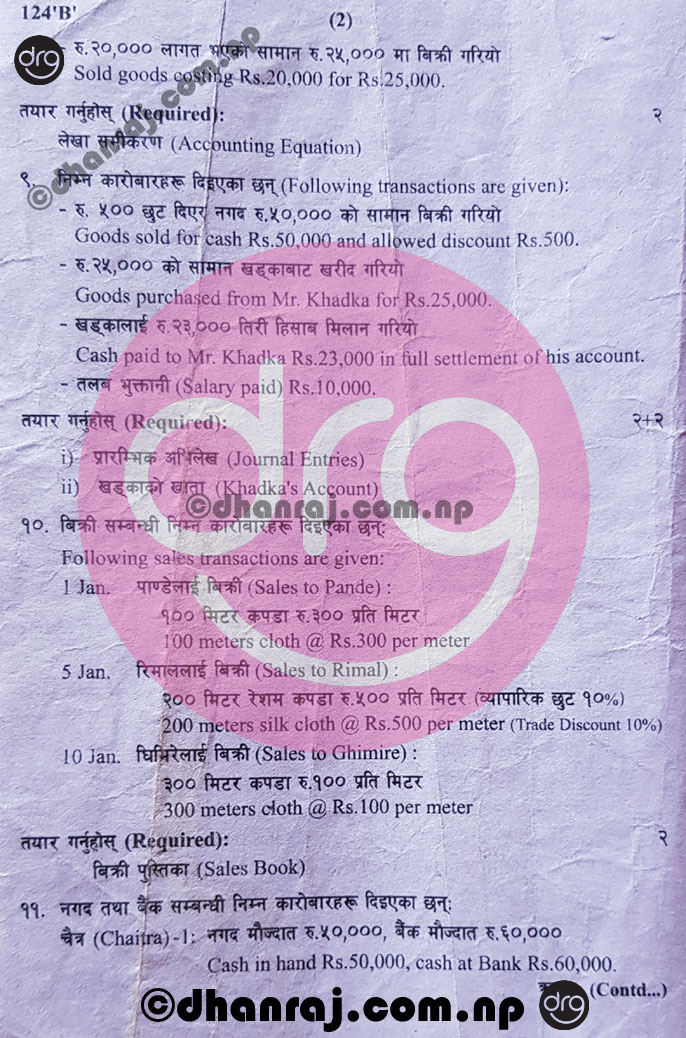 124'B'
(2)
drg
- रु.२०,००० लागत भएको सामान रु.२५,००० मा बिक्री गरियो
Sold goods costing Rs.20,000 for Rs.25,000.
तयार गर्नुहोस् (Required): २
लेखा समीकरण (Accounting Equation)
©dhanraj.com.np
९. निम्न कारोबारहरू दिइएका छन् (Following transactions are given):
- रु. ५०० छुट दिएर नगद रु.५०,००० को सामान बिक्री गरियो
Goods sold for cash Rs.50,000 and allowed discount Rs.500.
- रु.२५,००० को सामान खड्काबाट खरीद गरियो
Goods purchased from Mr. Khadka for Rs.25,000.
- खड्कालाई रु.२३,००० तिरी हिसाब मिलान गरियो
Cash paid to Mr. Khadka Rs.23,000 in full settlement of his account.
- तलब भुक्तानी (Salary paid) Rs.10,000.
तयार गर्नुहोस् (Required): २+२
i) प्रारम्भिक अभिलेख (Journal Entries)
ii) खड्काको खाता (Khadka's Account)
drg
©dhanraj.com.np
१०. बिक्री सम्बन्धी निम्न कारोबारहरू दिइएका छन्:
Following sales transactions are given:
1 Jan. पाण्डेलाई बिक्री (Sales to Pande) :
१०० मिटर कपडा रु.३०० प्रति मिटर
100 meters cloth @ Rs.300 per meter
5 Jan. रिमाललाई बिक्री (Sales to Rimal) :
२०० मिटर रेशम कपडा रु.५०० प्रति मिटर (व्यापारिक छुट १०%)
200 meters silk cloth @ Rs.500 per meter (Trade Discount 10%)
10 Jan. घिमिरेलाई बिक्री (Sales to Ghimire) :
३०० मिटर कपडा रु.१०० प्रति मिटर
300 meters cloth @ Rs.100 per meter
तयार गर्नुहोस् (Required): २
बिक्री पुस्तिका (Sales Book)
११. नगद तथा बैंक सम्बन्धी निम्न कारोबारहरू दिइएका छन्:
चैत्र (Chaitra)-1: नगद मौज्दात रु.५०,०००, बैंक मौज्दात रु.६०,०००
Cash in hand Rs.50,000, cash at Bank Rs.60,000.
(Contd...)
drg
©dhanraj.com.np